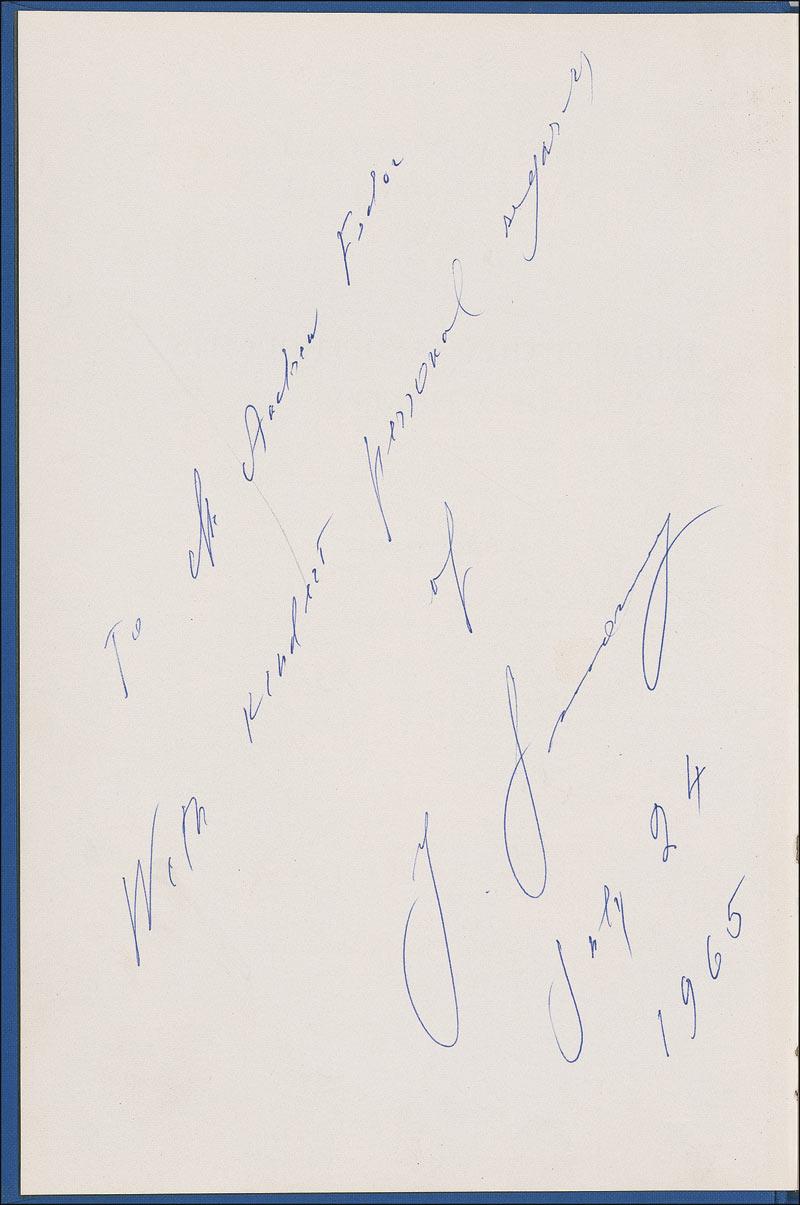 To Mr Andrew Fodor
With kindest personal regards
of
J. Jmmery
July 24
1965